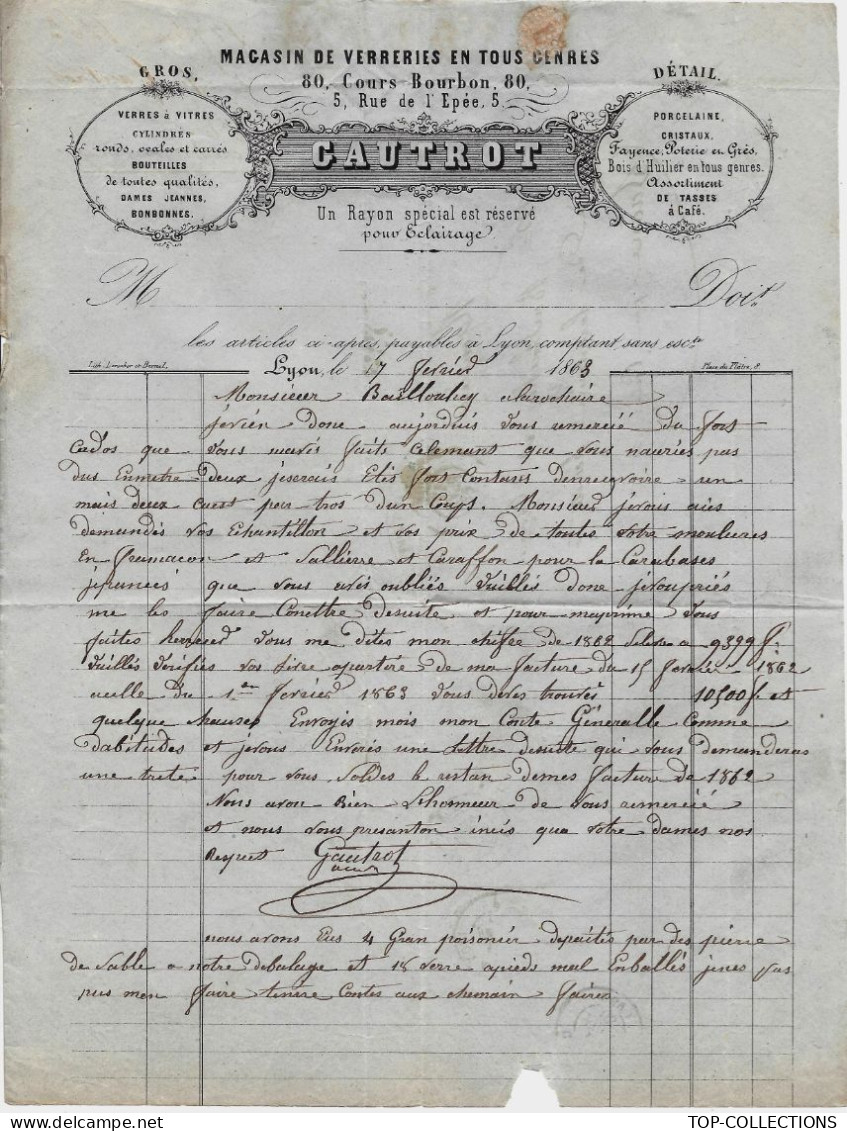 MAGASIN DE VERRERIES EN TOUS GENRES
80, Cours Bourbon, 80,
5, Rue de l'Epée, 5
GROS,
VERRES à VITRES
CYLINDRES
ronds, ovales et carrés
BOUTEILLES
de toutes qualités,
DAMES JEANNES,
BONBONNES.
GAUTROT
Un Rayon spécial est réservé
pour Eclairage
DÉTAIL.
PORCELAINE,
CRISTAUX,
Fayence, Poterie en Grès,
Bois d'Huilier en tous genres.
Assortiment
DE TASSES
à Café.
M Doit
les articles ci-après, payables à Lyon comptant sans escte
Place du Plâtre, 8
Lyon, le 17 fevrier 1863
Monsieur
jevien donc aujordhuis vous remercié du fors
Cados que vous mavés faits alemant que vous nauriés pas
deux jeserais Etés fors Contans
mais deux pour tros dun Coups. Monsieur javais
demandés vos Echantillon et vos prix de toutes votre moulures
En et Sallierre et Caraffon pour la
que vous avés oubliés vuillés donc
me les faire Conettre desuite et pour vous
faites vous me dites mon chifre de 1862 a 9399 f.
vuillés vérifiés vos livre apartére de ma facture du 15 fevrier 1862
aselle du 1er fevrier 1863 vous deves trouvés 10500 f. et
quelque chauses Envoyés mois mon Conte Généralle comme
dabitudes et jevous Enverés une lettre desuite qui vous demanderas
une trete pour vous Soldes le restan demes facture de 1862
Nous avon Bien Lhosneur de vous remercié
et nous vous presanton incis qua votre dames nos
Respuet Gautrot
nous avons Eus 4 Gran poisonier depaités par des pierre
de Sable a notre debalage et 18 verre apieds mal Enballés jenes pas
pus men faire tenire Contes aux chemain faires
TOP-COLLECTIONS